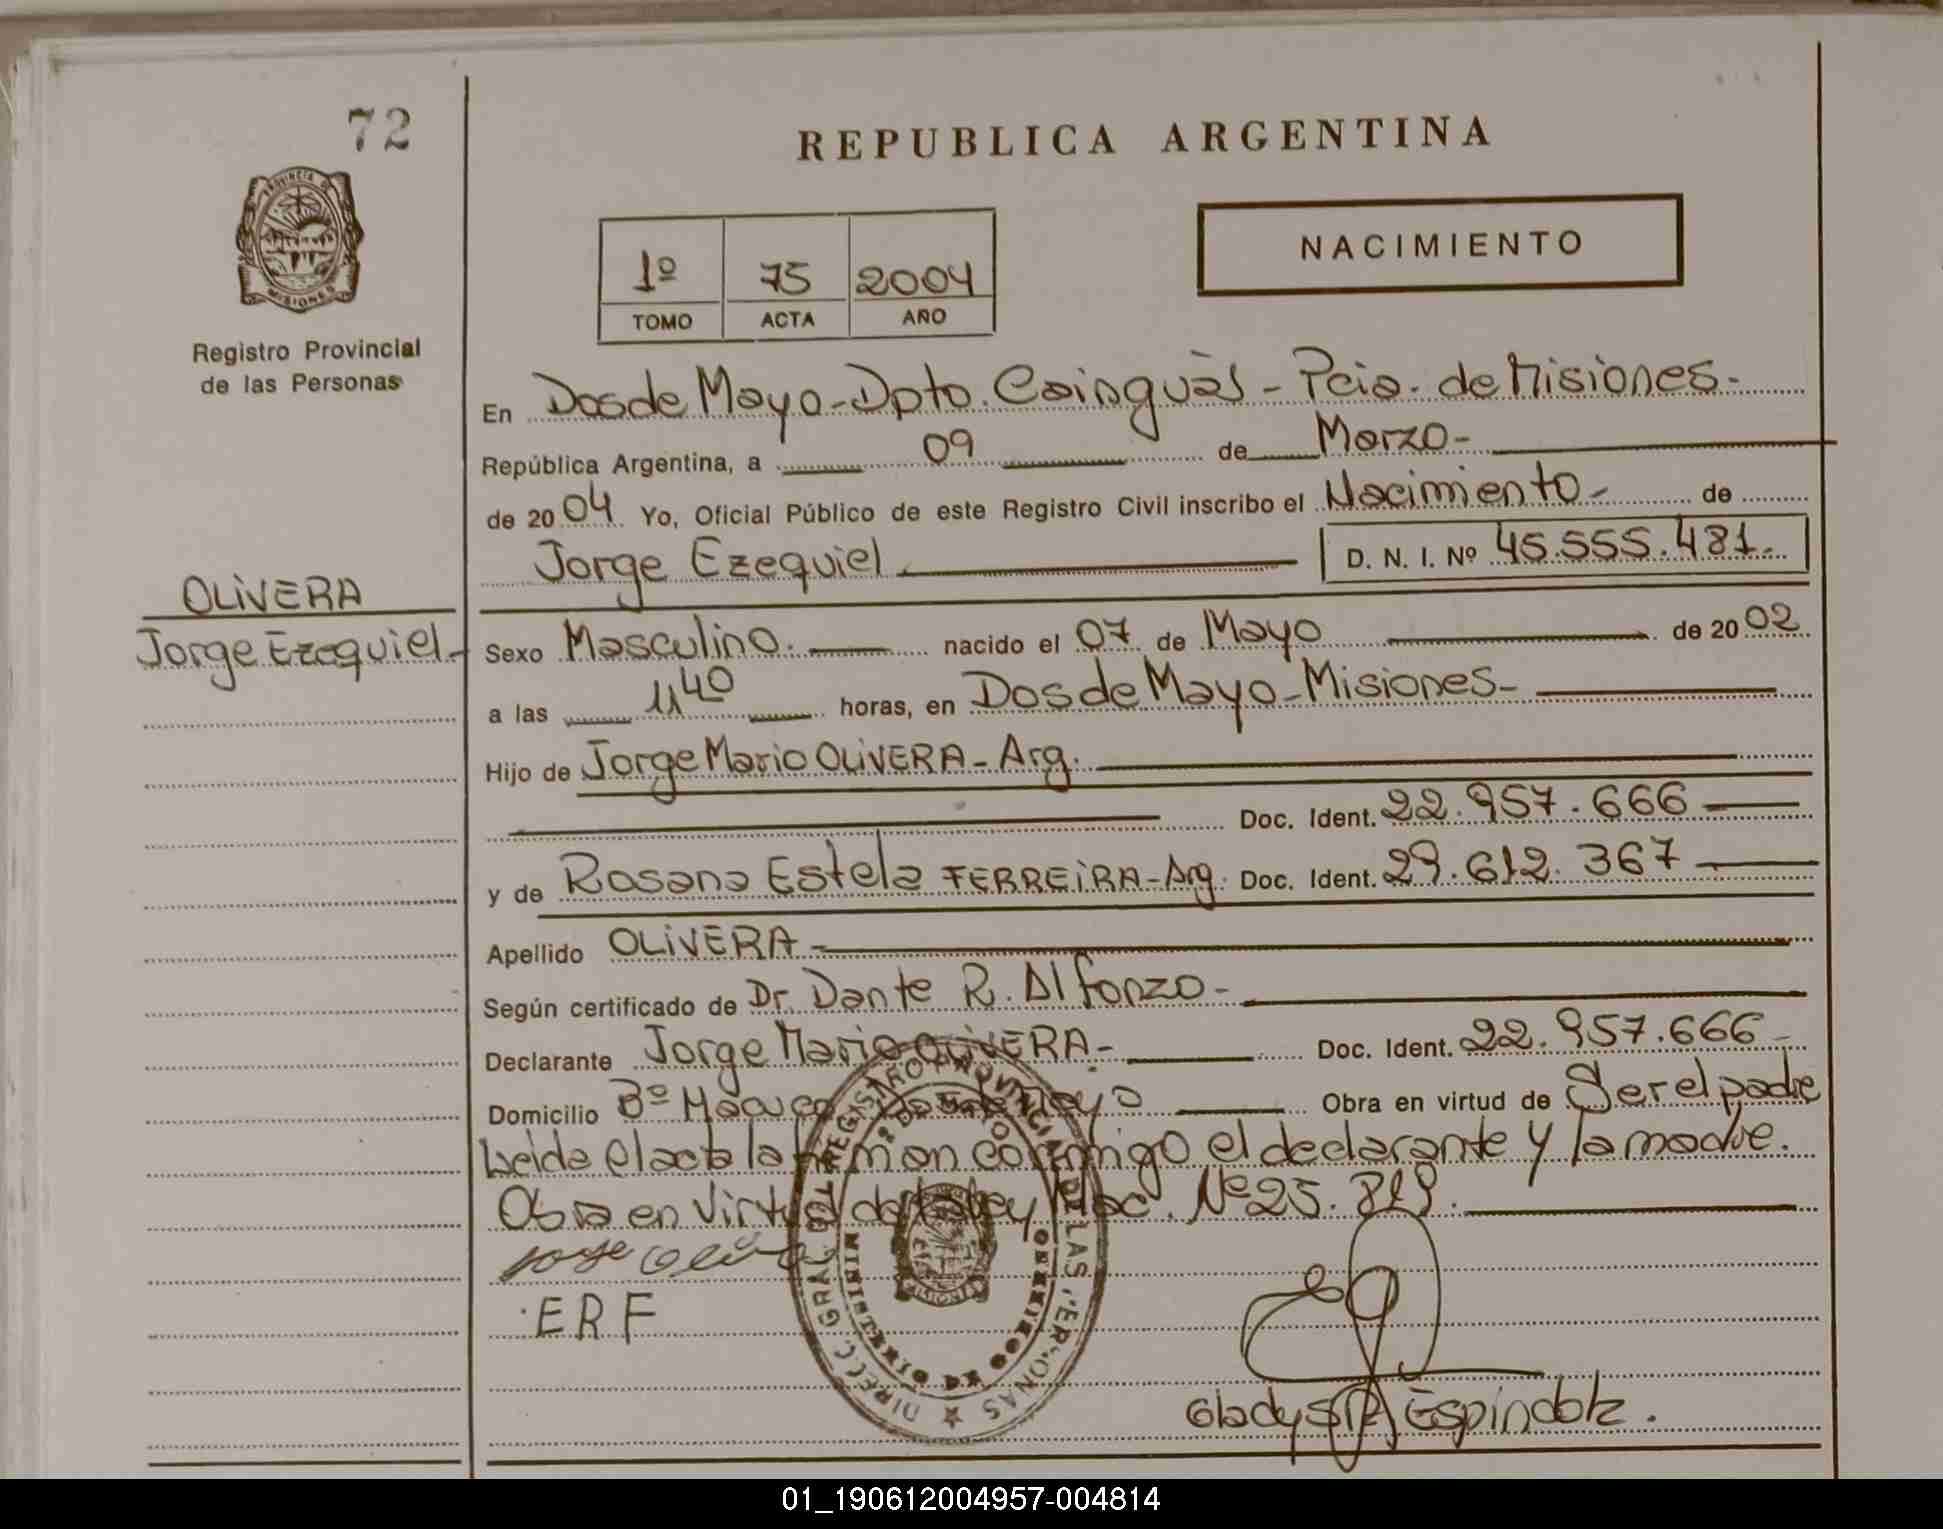 72
REPUBLICA ARGENTINA
PROVINCIA DE
MISIONES
Registro Provincial
de las Personas
NACIMIENTO
1º 75 2004
TOMO ACTA AÑO
En Dos de Mayo - Dpto. Cainguàs - Pcia. de Misiones -
República Argentina, a 09 de Marzo -
de 2004 Yo, Oficial Público de este Registro Civil inscribo el Nacimiento - de
Jorge Ezequiel D. N. I. Nº 45.555.481.-
OLiVERA
Jorge Ezequiel -
Sexo Masculino. nacido el 07 de Mayo de 2002
a las 11 40 horas, en Dos de Mayo - Misiones -
Hijo de Jorge Mario OLiVERA - Arg.
Doc. Ident. 22.957.666
y de Rosana Estela FERREiRA - Arg. Doc. Ident. 29.612.367
Apellido OLiVERA -
Según certificado de Dr. Dante R. Alfonzo -
Declarante Jorge Mario OLiVERA - Doc. Ident. 22.957.666 -
Domicilio Bº Dos de Mayo Obra en virtud de Ser el padre
Leida el acta la firman conmigo el declarante y la madre.
Obra en virtud de la Ley Nac. Nº 25.819.
ERF
DIRECC. GRAL. DEL REGISTRO PROVINCIAL DE LAS PERSONAS
MINISTERIO DE GOBIERNO
Gladys Espindola.
01_190612004957-004814